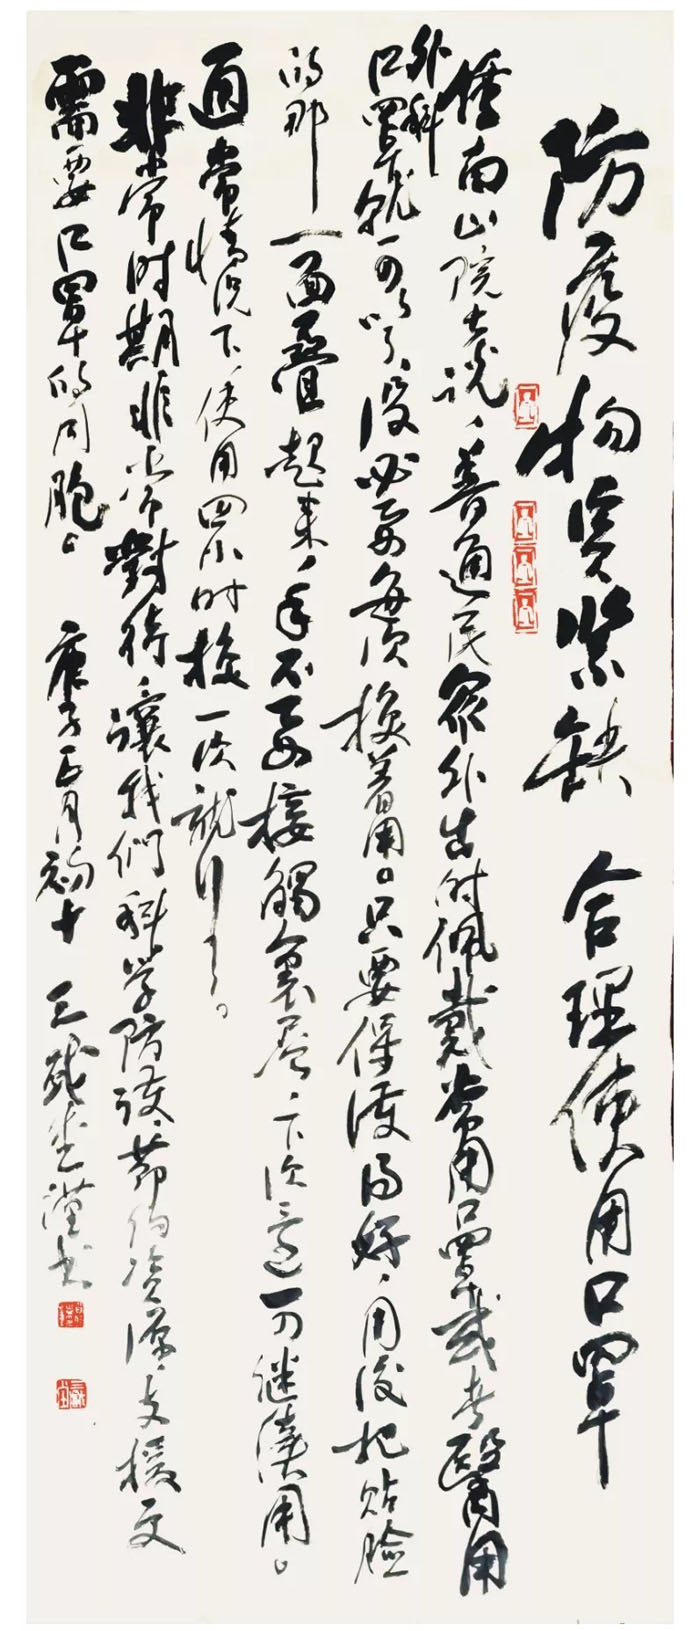 防疫物资紧缺 合理使用口罩
鍾南山院士說，普通民眾外出时佩戴常用口罩或者醫用
外科
口罩就可以了，没必要每次换着用。只要保護得好，用後把贴臉
的那一面疊起来，手不要接觸裏层，下次还可继續用。
通常情况下，使用四小时换一次就行了。
非常时期非常對待，讓我們科学防護，節约资源，支援更
需要口罩的同胞。 庚子正月初十